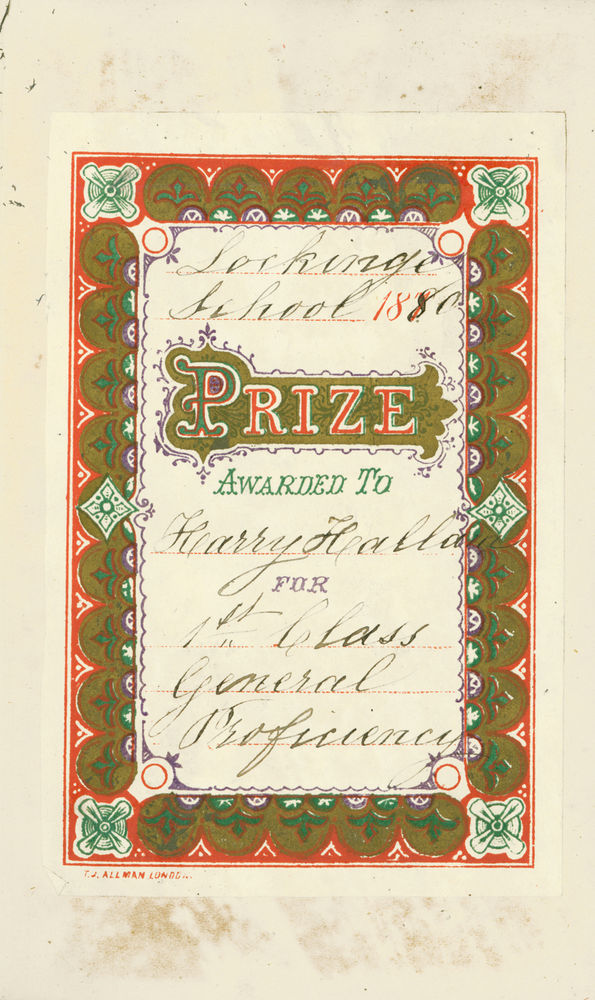 Lockinge
School 1880
PRIZE
AWARDED TO
Harry Hallam
FOR
1st Class
General
Proficiency
T.J. ALLMAN LONDON.